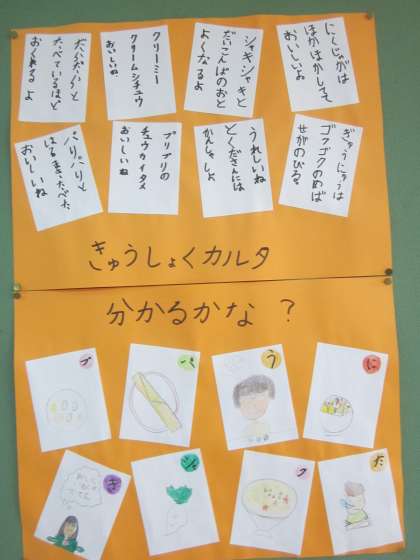 にくじゃがは
ほかほかしてて
おいしいよ
シャキシャキと
だいこんばのおと
よくなるよ
クリーミー
クリームシチュウ
おいしいね
だんだんと
たべているほど
おくれるよ
ぎゅうにゅうは
ゴクゴクのめば
せがのびる。
うれしいね
とくださんには
かんしゃしよ
プリプリの
チュウカイタメ
おいしいね
パリパリと
はるまきたべた
おいしいね
きゅうしょくカルタ
分かるかな ?
に
う
パ
プ
だ
ク
シ
ぎ